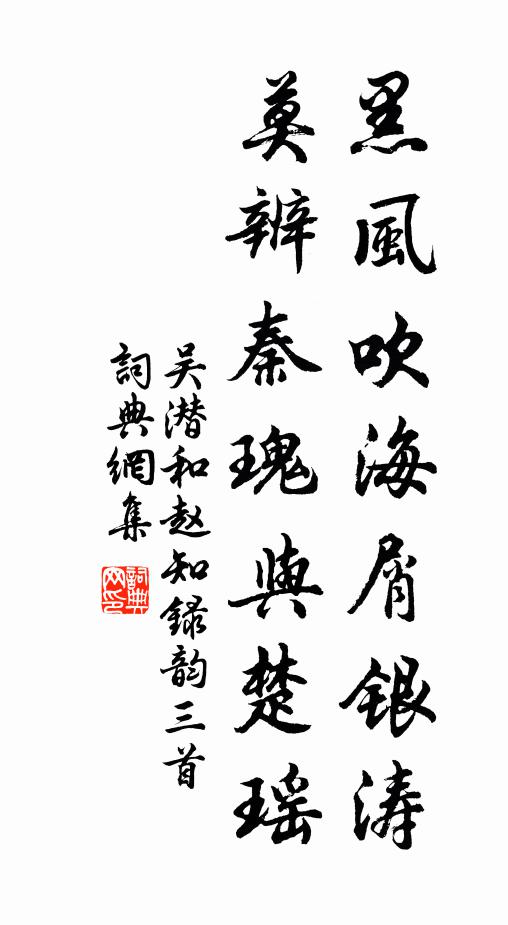 黑風吹海屑銀涛
莫辨秦瑰與楚瑶
吴潜和赵知録韵三首
詞典網集
詞典
网印